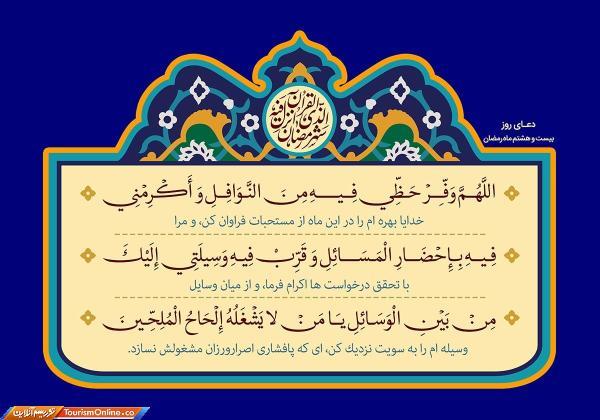 شهر رمضان الذي أنزل فيه القرآن
دعای روز
بیست و هشتم ماه رمضان
اللَّهُمَّ وَفِّرْ حَظِّي فِيهِ مِنَ النَّوَافِلِ وَ أَكْرِمْنِي
خدایا بهره ام را در این ماه از مستحبات فراوان کن، و مرا
فِيهِ بِإِحْضَارِ الْمَسَائِلِ وَ قَرِّبْ فِيهِ وَسِيلَتِي إِلَيْكَ
با تحقق درخواست ها اکرام فرما، و از میان وسایل
مِنْ بَيْنِ الْوَسَائِلِ يَا مَنْ لا يَشْغَلُهُ إِلْحَاحُ الْمُلِحِّينَ
وسیله ام را به سویت نزدیک کن، ای که پافشاری اصرارورزان مشغولش نسازد.
توریسم آنلاین TourismOnline.co